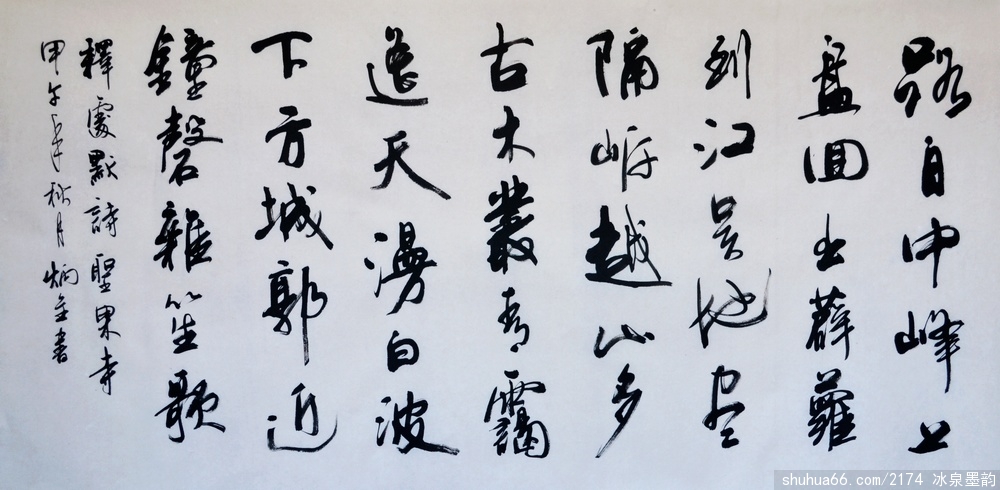 路自中峰上
盘囬出薜蘿
到江吴地尽
隔岸越山多
古木叢青靄
遥天漫白波
下方城郭近
鐘磬雜笙歌
釋處默詩聖果寺
甲午年秋月炳金書
shuhua66.com/2174 冰泉墨韵